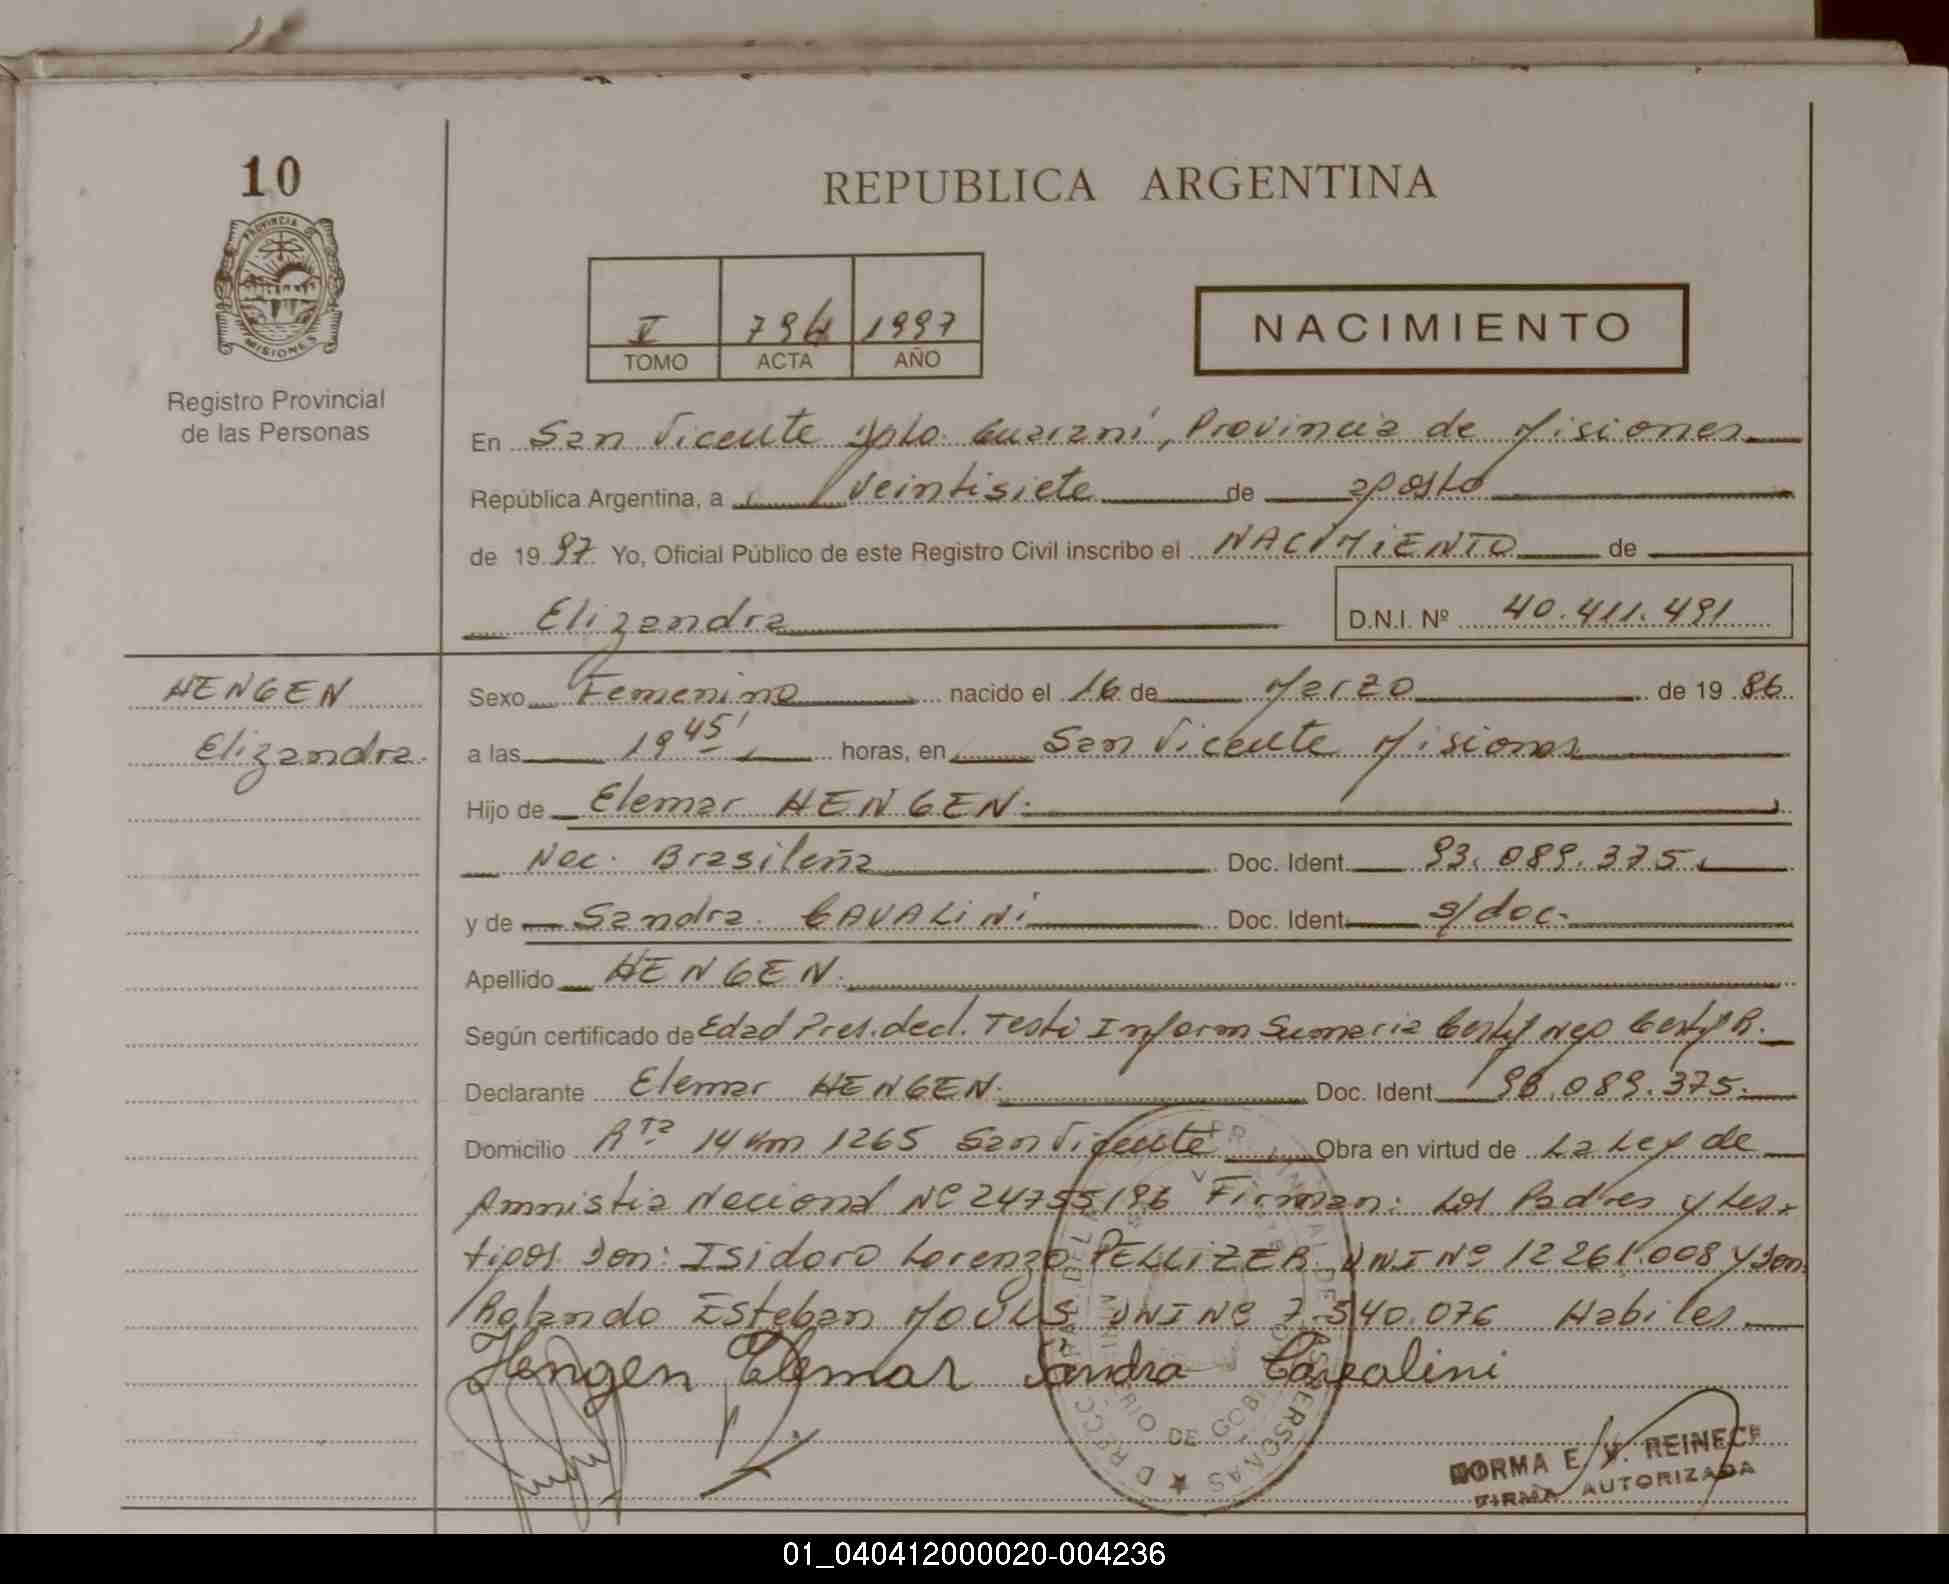 10
PROVINCIA DE
MISIONES
Registro Provincial
de las Personas
REPUBLICA ARGENTINA
V 794 1997
TOMO ACTA AÑO
NACIMIENTO
En San Vicente Dpto. Guaraní, Provincia de Misiones
República Argentina, a veintisiete de agosto
de 1997 Yo, Oficial Público de este Registro Civil inscribo el NACIMIENTO de
Elizandra
D.N.I. Nº 40.411.491
HENGEN
Elizandra.
Sexo Femenino nacido el 16 de Marzo de 1986
a las 19 45' horas, en San Vicente Misiones
Hijo de Elemar HENGEN.
Nac. Brasileña Doc. Ident. 93.089.375.
y de Sandra CAVALINI Doc. Ident. s/doc.
Apellido HENGEN.
Según certificado de Edad Pres. decl. Testi Inform Sumaria Certif Neg Certif R.
Declarante Elemar HENGEN. Doc. Ident. 93.089.375.
Domicilio Rta 14 Km 1265 San Vicente Obra en virtud de La Ley de
Amnistia Nacional Nº 24755/96 Firman: Los Padres y tes-
tigos Don: Isidoro Lorenzo PELLIZER DNI Nº 12261.008 y Don
Rolando Esteban MOULS DNI Nº 7.540.076 Habiles.
Hengen Elemar Sandra Cavalini
NORMA E. V. REINECK
FIRMA AUTORIZADA
01_040412000020-004236